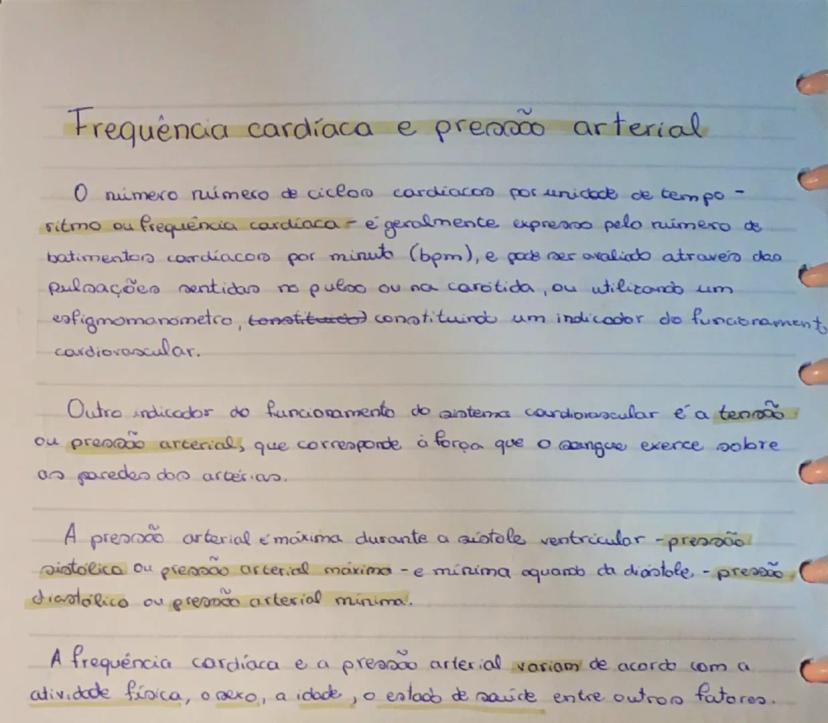 Frequência cardíaca e pressão arterial
O número número de ciclos cardíacos por unidade de tempo -
ritmo ou frequência cardíaca - é geralmente expresso pelo número de
batimentos cardíacos por minuto (bpm), e pode ser avaliado através das
pulsações sentidas no pulso ou na carótida, ou utilizando um
esfigmomanometro, constituindo um indicador do funcionament
cardiovascular.
Outro indicador do funcionamento do sistema cardiovascular é a tensão
ou pressão arterial, que corresponde à força que o sangue exerce sobre
as paredes das artérias.
A pressão arterial é máxima durante a sístole ventricular - pressão
sistólica ou pressão arterial máxima - e mínima aquando da diástole, - pressão
diastólica ou pressão arterial mínima.
A frequência cardíaca e a pressão arterial variam de acordo com a
atividade física, o sexo, a idade, o estado de saúde entre outros fatores.